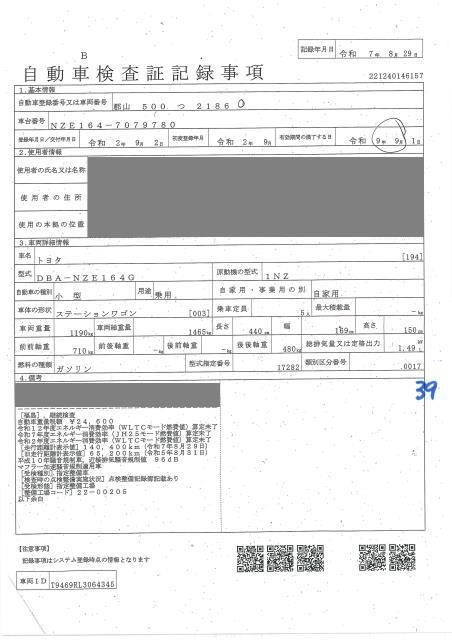 記録年月日 令和 7年 8月29日
B
自動車検査証記録事項
221240146157
1.基本情報
自動車登録番号又は車両番号 郡山 500 つ 2186
車台番号 NZE164-7079780
登録年月日/交付年月日 令和 2年 9月 2日 初度登録年月 令和 2年 9月 有効期間の満了する日 令和 9年 9月 1日
2.使用者情報
使用者の氏名又は名称
使用者の住所
使用の本拠の位置
3.車両詳細情報
車名 トヨタ [194]
型式 DBA-NZE164G 原動機の型式 1NZ
自動車の種別 小型 用途 乗用 自家用・事業用の別 自家用
車体の形状 ステーションワゴン [003] 乗車定員 5人 最大積載量 -kg
車両重量 1190kg 車両総重量 1465kg 長さ 440cm 幅 169cm 高さ 150cm
前前軸重 710kg 前後軸重 -kg 後前軸重 -kg 後後軸重 480kg 総排気量又は定格出力 1.49
燃料の種類 ガソリン 型式指定番号 17282 類別区分番号 0017
4.備考
39
[福島],継続検査
自動車重量税額 ¥24,600
令和12年度エネルギー消費効率(WLTCモード燃費値)算定未了
令和7年度エネルギー消費効率(JH25モード燃費値)算定未了
令和2年度エネルギー消費効率(WLTCモード燃費値)算定未了
[走行距離計表示値]140,400km(令和7年8月29日)
[旧走行距離計表示値]65,200km(令和5年8月31日)
平成10年騒音規制車、近接排気騒音規制値 96dB
マフラー加速騒音規制適用車
[受検種別]指定整備車
[検査時の点検整備実施状況]点検整備記録簿記載あり
[受検形態]指定整備工場
[整備工場コード]22-00205
以下余白
【注意事項】
記録事項はシステム登録時点の情報となります
車両ID T9469RL3064345